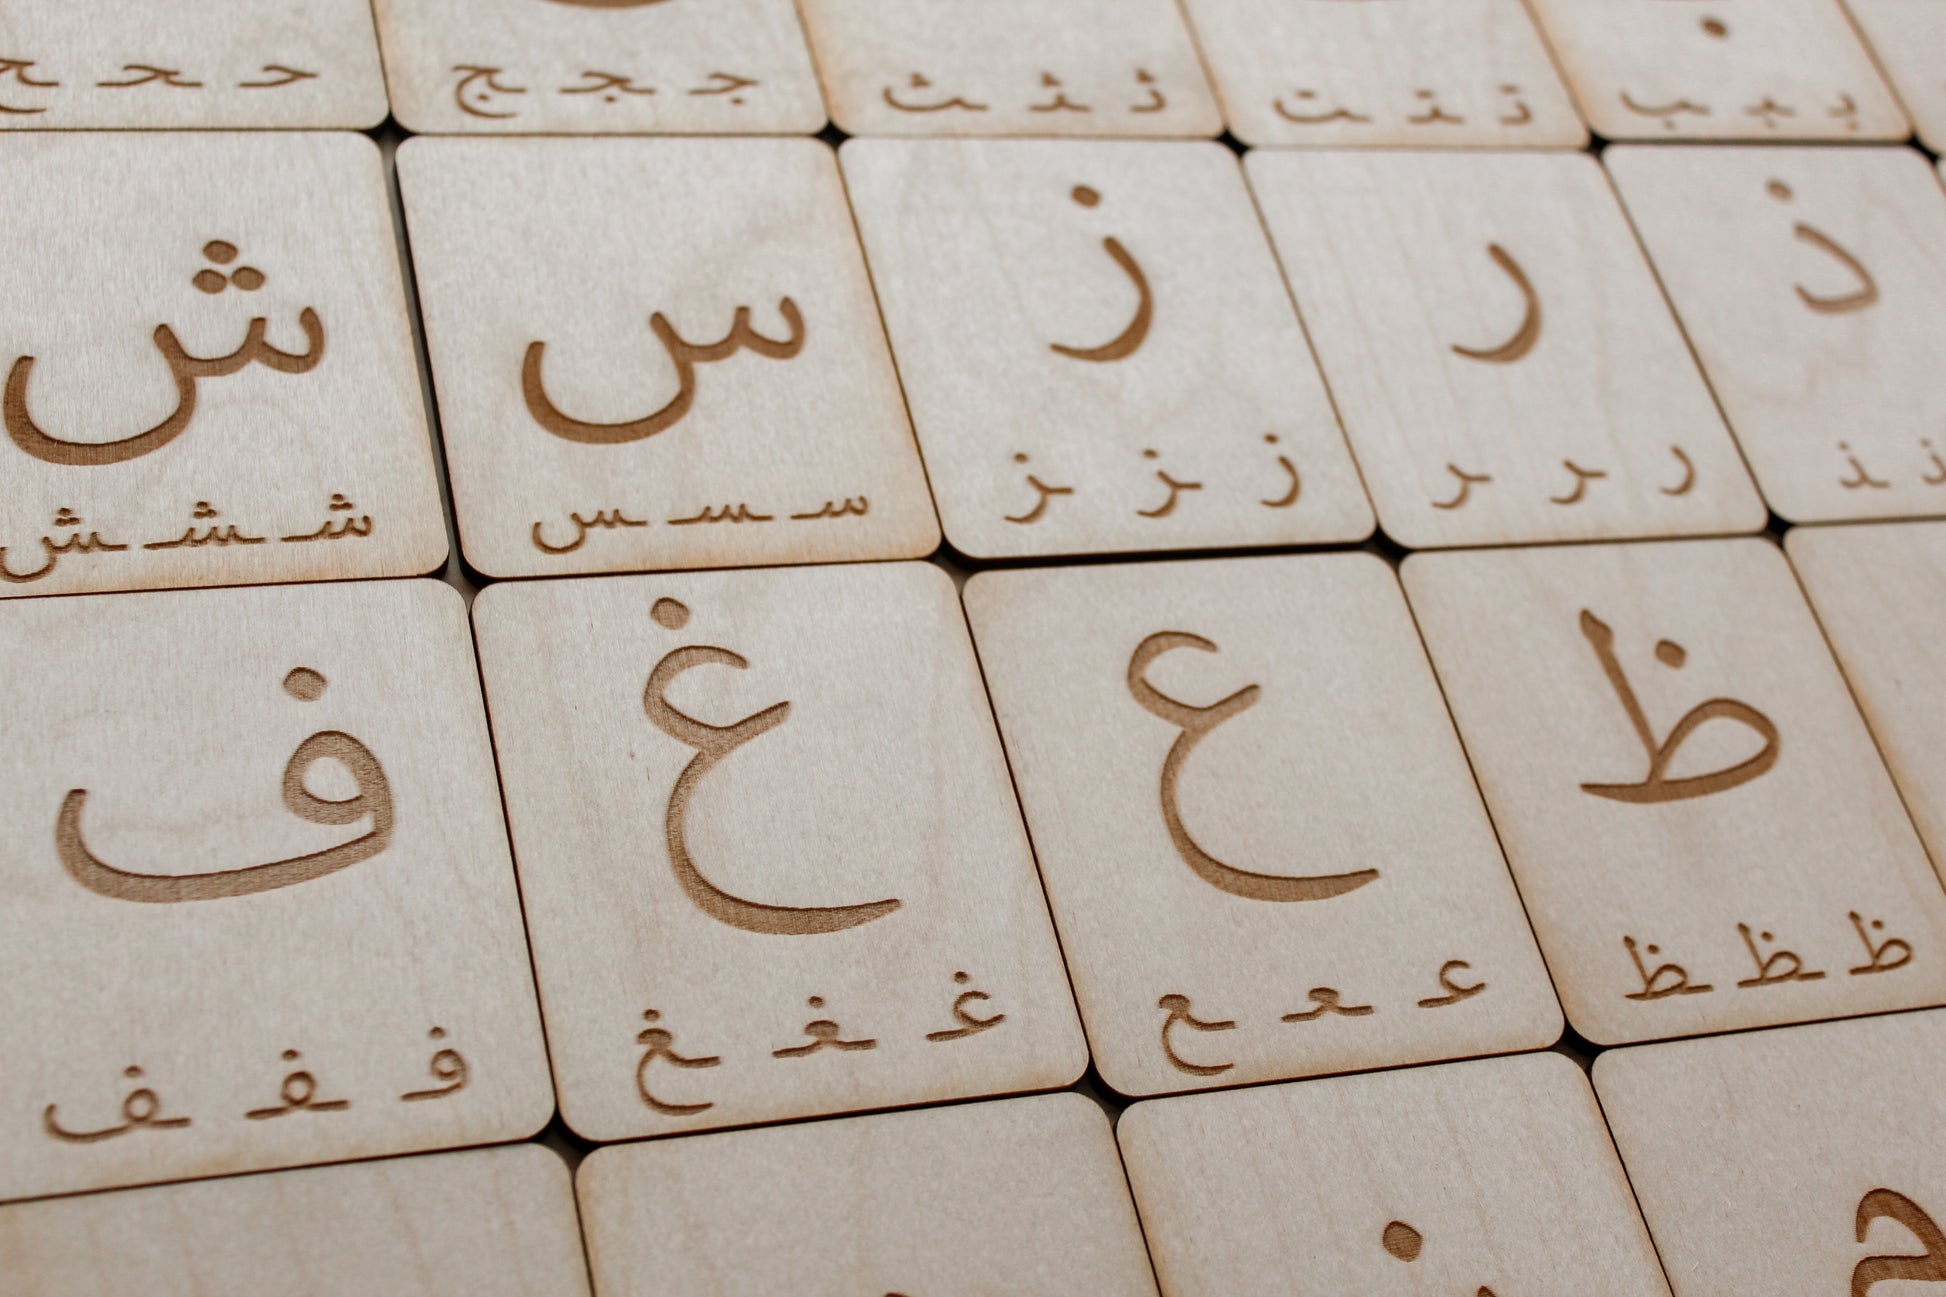 بـ ـبـ ـب
تـ ـتـ ـت
ثـ ـثـ ـث
جـ ـجـ ـج
حـ ـحـ ـح
ذ
ذ ـذ
ر
ر ـر ـر
ز
ز ـز ـز
س
سـ ـسـ ـس
ش
شـ ـشـ ـش
ظ
ظـ ـظـ ـظ
ع
عـ ـعـ ـع
غ
غـ ـغـ ـغ
ف
فـ ـفـ ـف